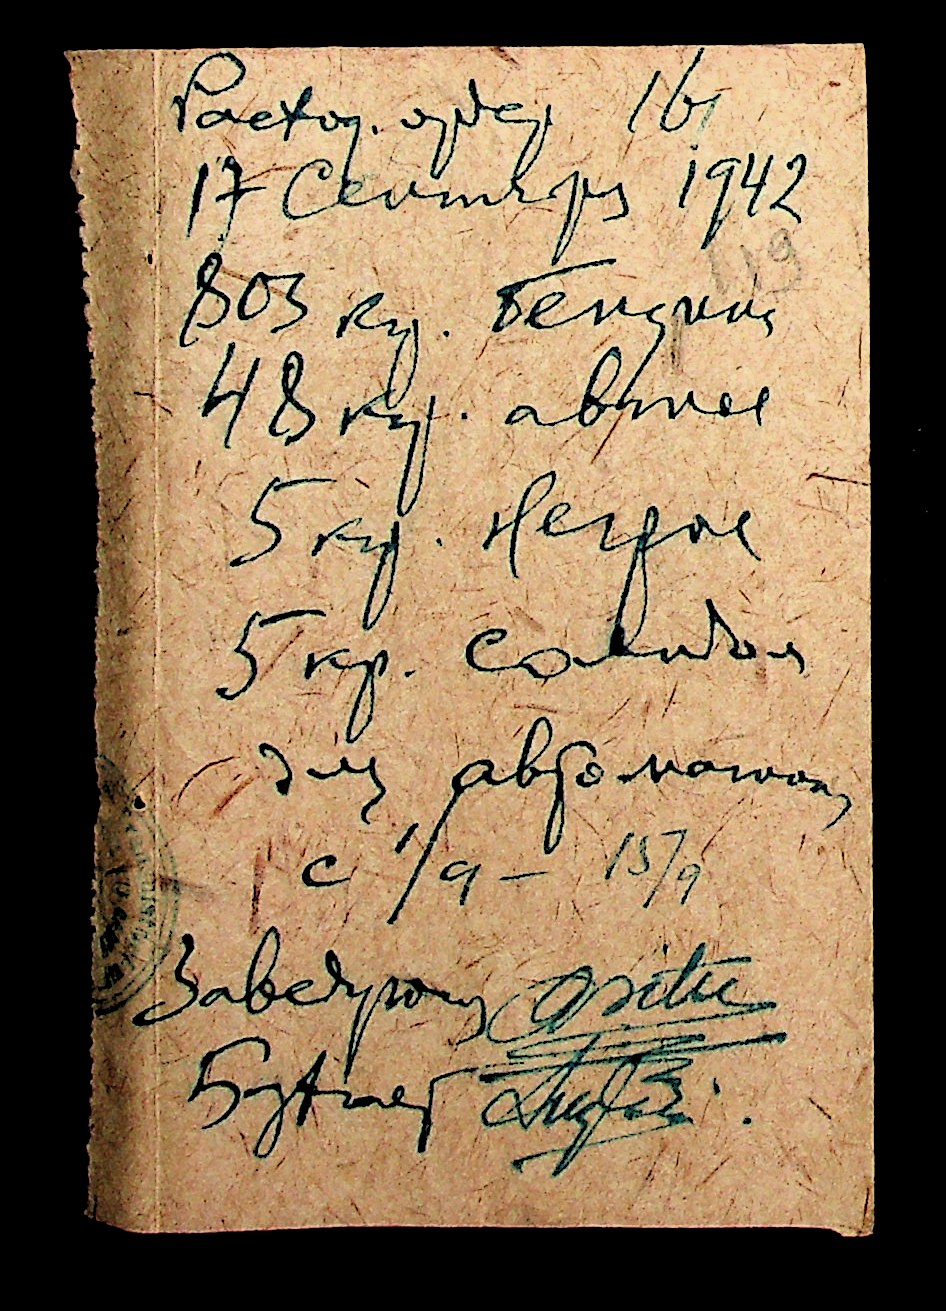 Расход. ордер 16
17 Сентября 1942
119
803 кг. Бензина
48 кг. автол
5 кг. нигрол
5 кг. Солидол
для автомашин
с 1/9 – 15/9
Заведующ
Бухгалт